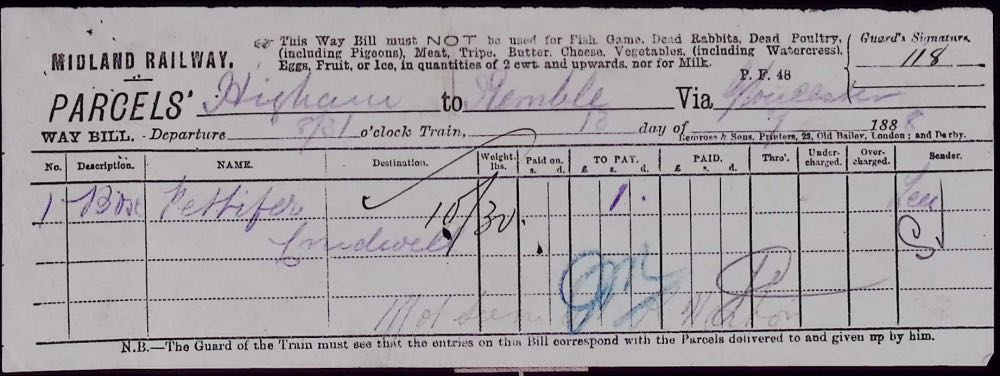 MIDLAND RAILWAY.
This Way Bill must NOT be used for Fish, Game, Dead Rabbits, Dead Poultry,
(including Pigeons), Meat, Tripe, Butter, Cheese, Vegetables, (including Watercress),
Eggs, Fruit, or Ice, in quantities of 2 cwt. and upwards, nor for Milk.
P. F. 48
Guard's Signature,
118
PARCELS' Higham to Kemble Via Gloucester
WAY BILL. - Departure 8/31 o'clock Train, 13 day of 188
Bemrose & Sons, Printers, 23, Old Bailey, London; and Derby.
No. Description. NAME. Destination. Weight. lbs. Paid on. s. d. TO PAY. £ s. d. PAID. £ s. d. Thro'. Under-charged. Over-charged. Sender.
1 Box Pettifer 10/30 1
Crudwell
N.B.—The Guard of the Train must see that the entries on this Bill correspond with the Parcels delivered to and given up by him.